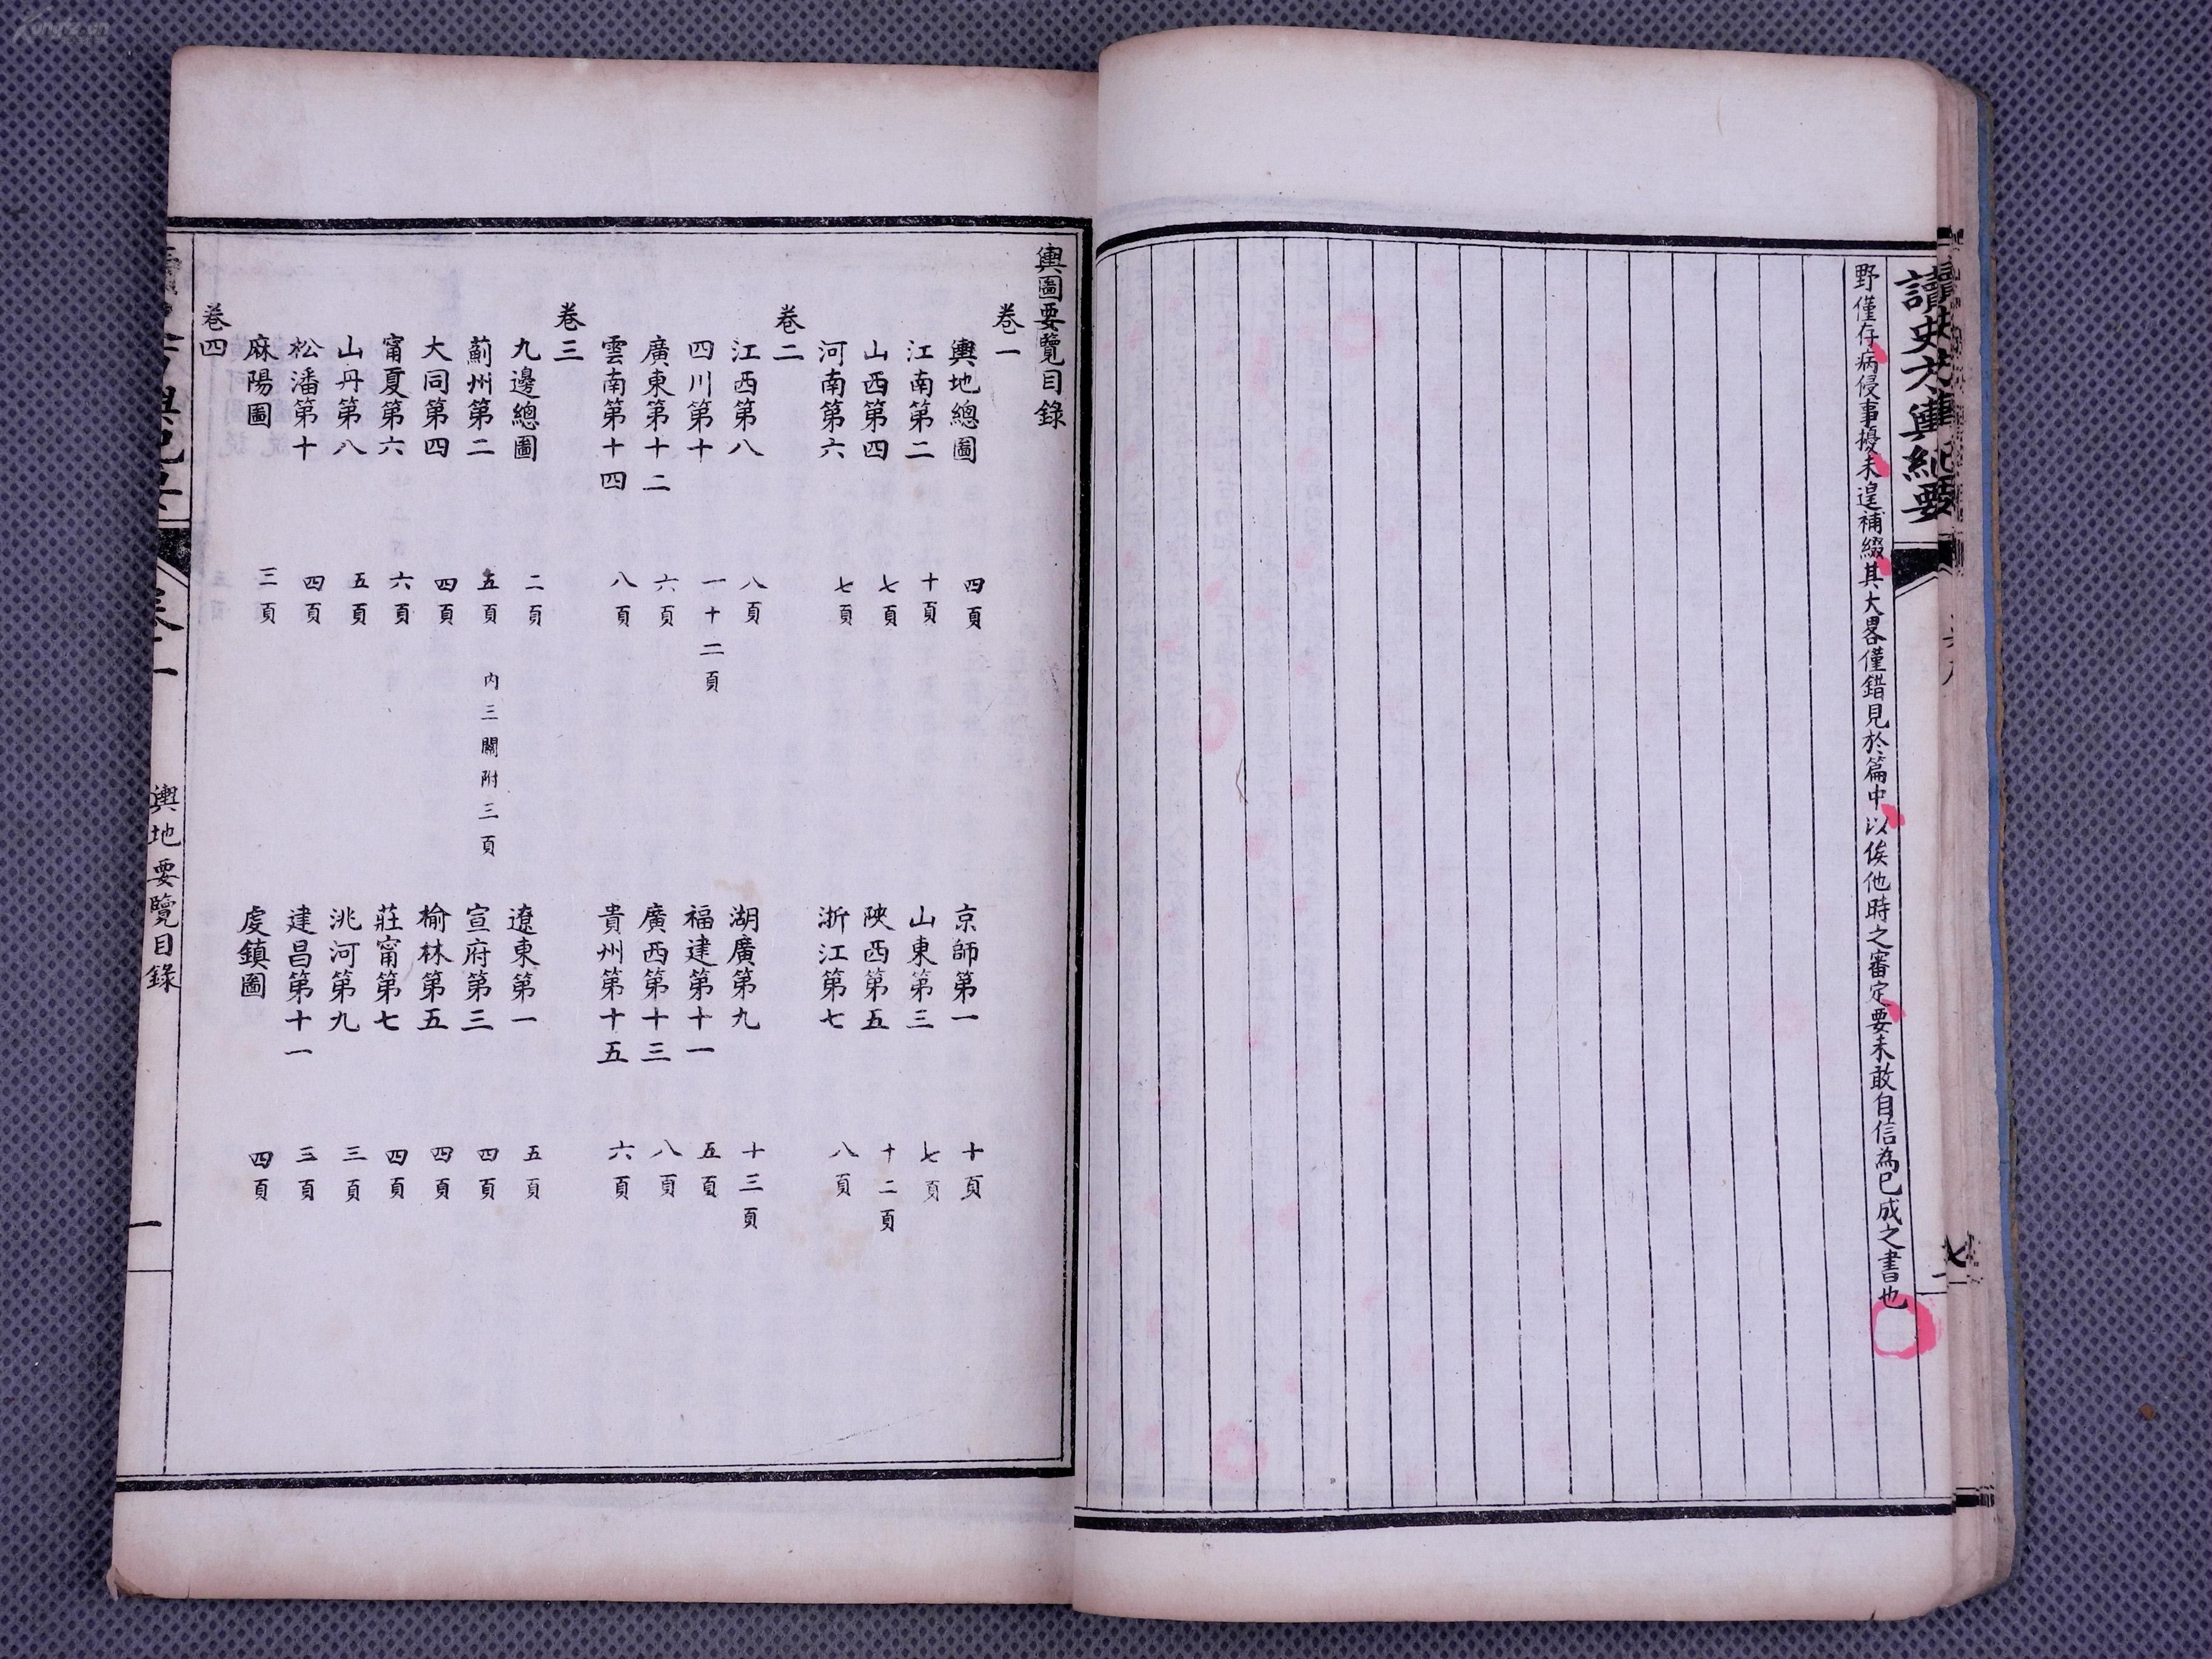 讀史方輿紀要
野僅存病侵事擾未遑補綴其大畧僅錯見於篇中以俟他時之審定要未敢自信為已成之書也
輿圖要覽目錄
卷一
輿地總圖 四頁 京師第一 十頁
江南第二 十頁 山東第三 七頁
山西第四 七頁 陜西第五 十二頁
河南第六 七頁 浙江第七 八頁
卷二
江西第八 八頁 湖廣第九 十三頁
四川第十 一十二頁 福建第十一 五頁
廣東第十二 六頁 廣西第十三 八頁
雲南第十四 八頁 貴州第十五 六頁
卷三
九邊總圖 二頁 遼東第一 五頁
薊州第二 五頁 內三關附三頁 宣府第三 四頁
大同第四 四頁 榆林第五 四頁
甯夏第六 六頁 莊甯第七 四頁
山丹第八 五頁 洮河第九 三頁
松潘第十 四頁 建昌第十一 三頁
麻陽圖 三頁 虔鎮圖 四頁
卷四
輿地要覽目錄
一
Kongfz.cn